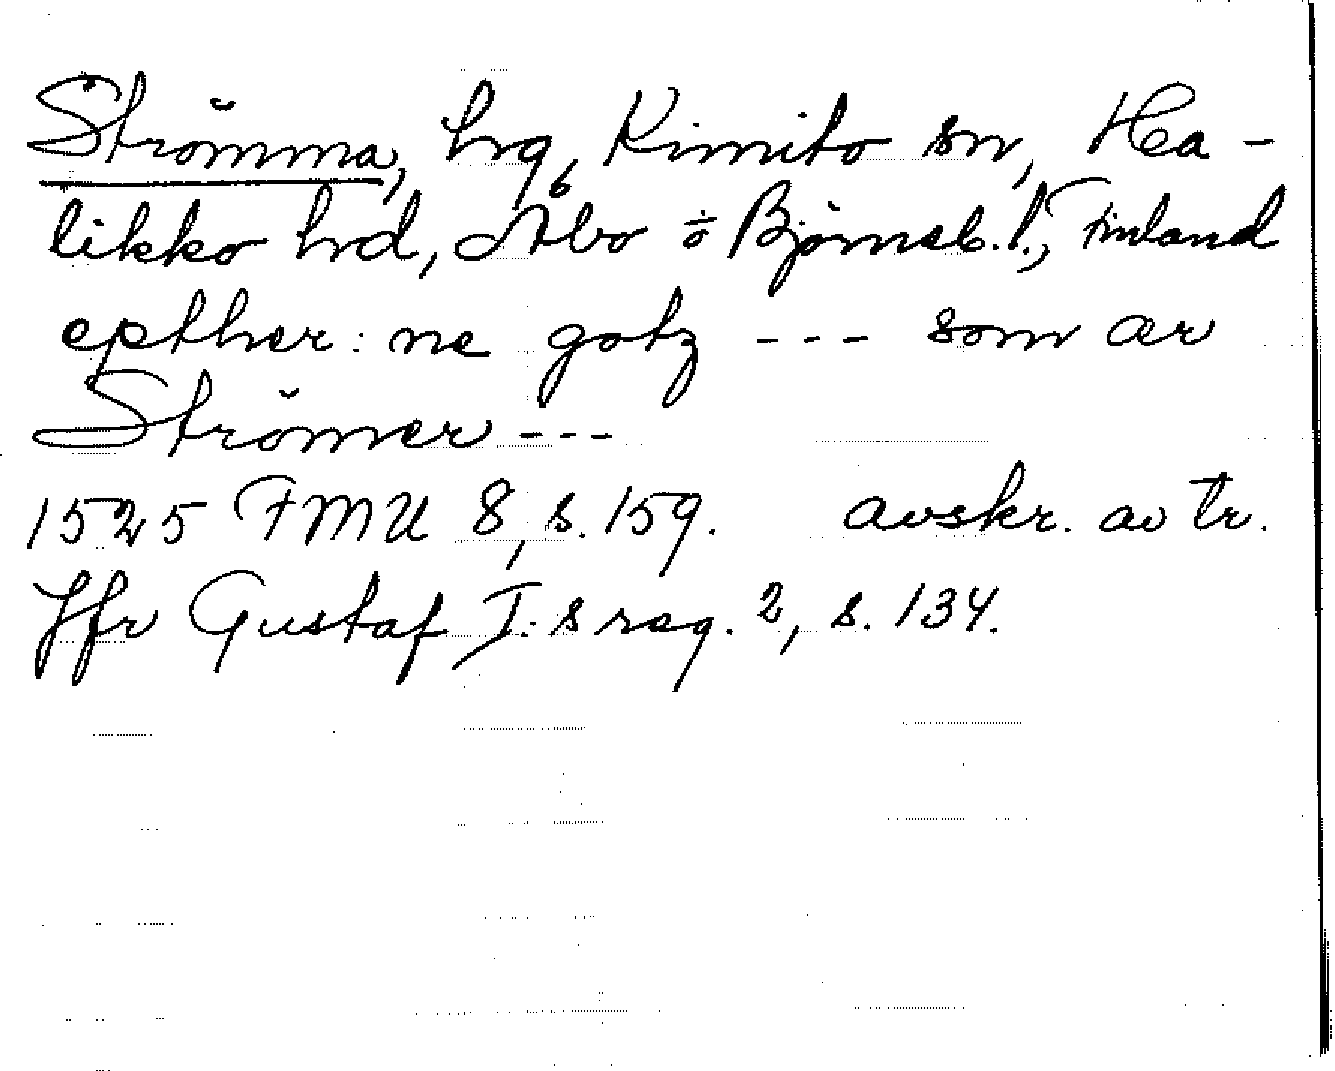 Strömma, hrg, Kimito sn, Ha-
likko hrd, Åbo ö Björneb. l., Finland
epther: ne gotz --- som ær
Strömer ---
1525 FMU 8, s. 159. avskr. av tr.
Jfr Gustaf I:s reg. 2, s. 134.